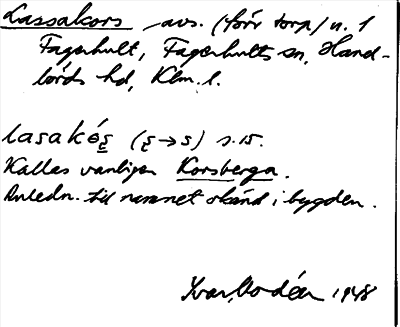 Lassakors avs. (förr torp) u. 1
Fagerhult, Fagerhults sn, Hand-
börds hd, Klm. l.
lasakós̨ (s̨→s) s. 15.
Kallas vanligen Korsberga.
Anledn. till namnet okänd i bygden.
Ivar Modéer 1948